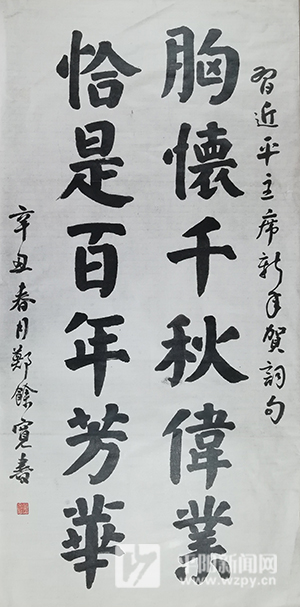 习近平主席新年贺词句
胸懷千秋偉業
恰是百年芳華
辛丑春月鄭餘寬書
平阳新闻网
www.wzpy.cn